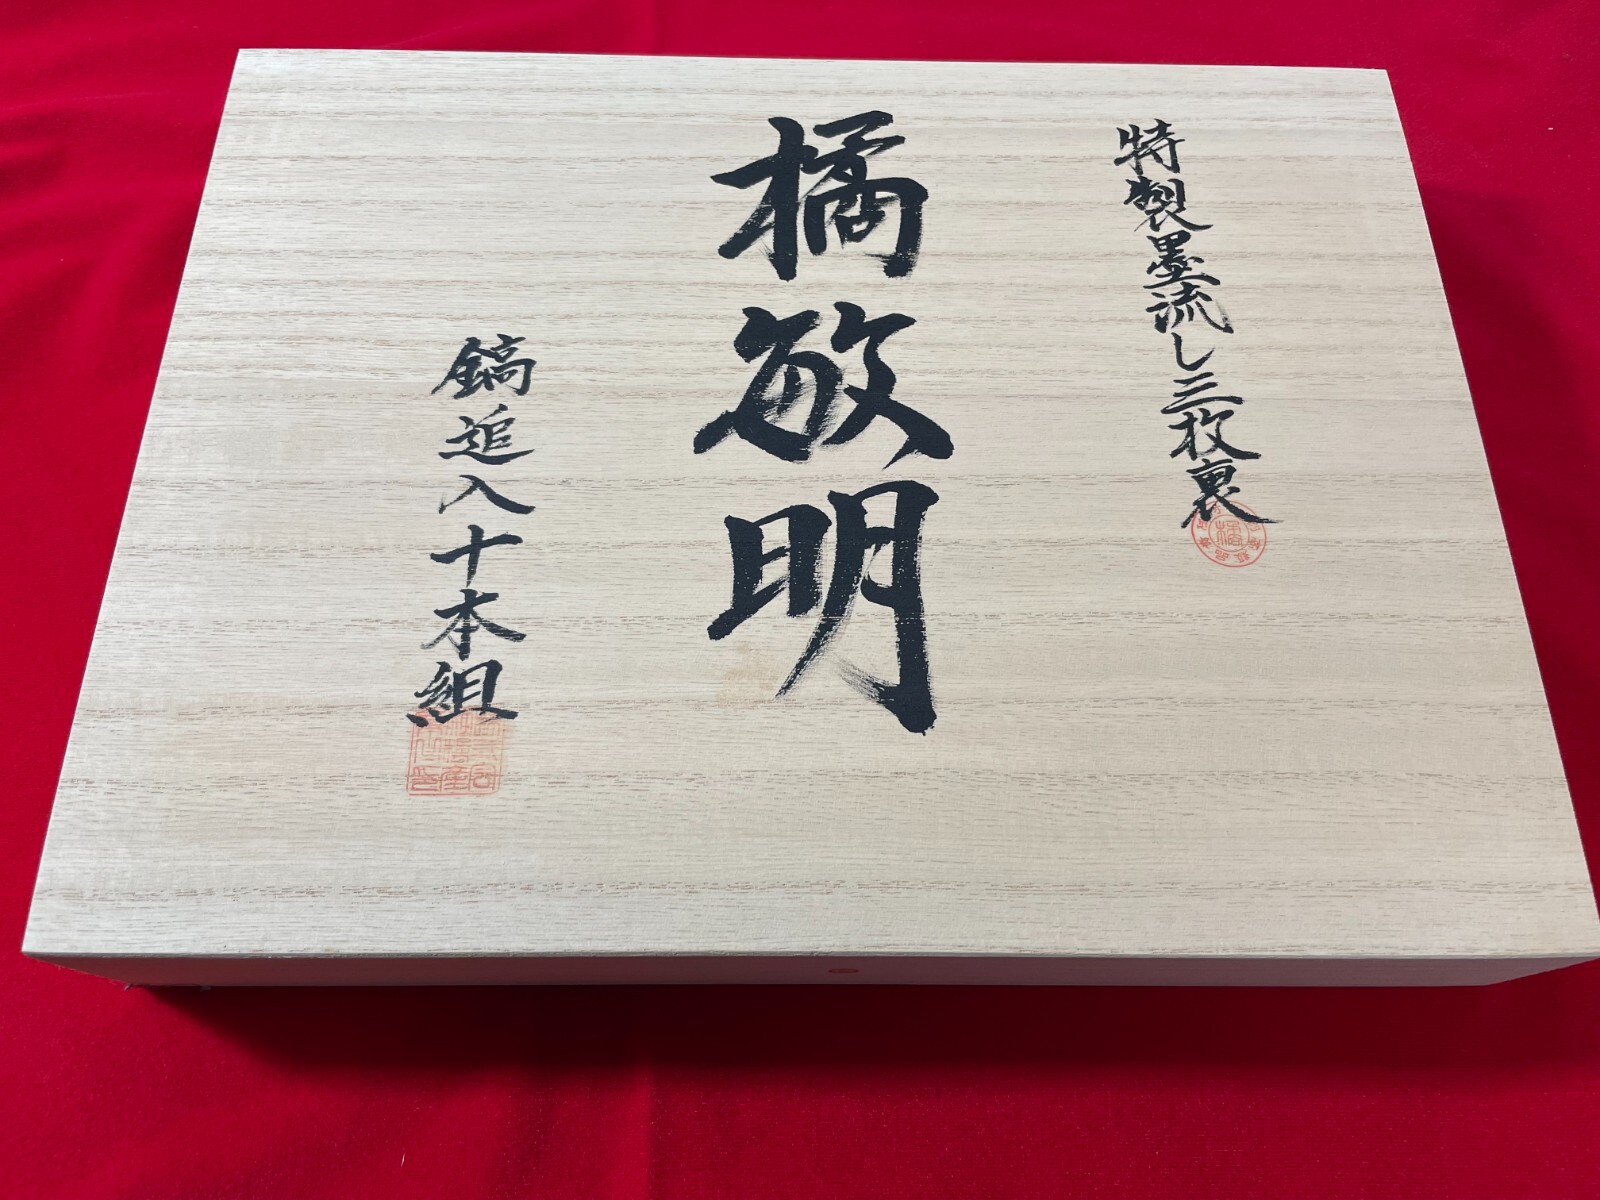 特製墨流し三枚裏
橘敏明
鎬追入十本組